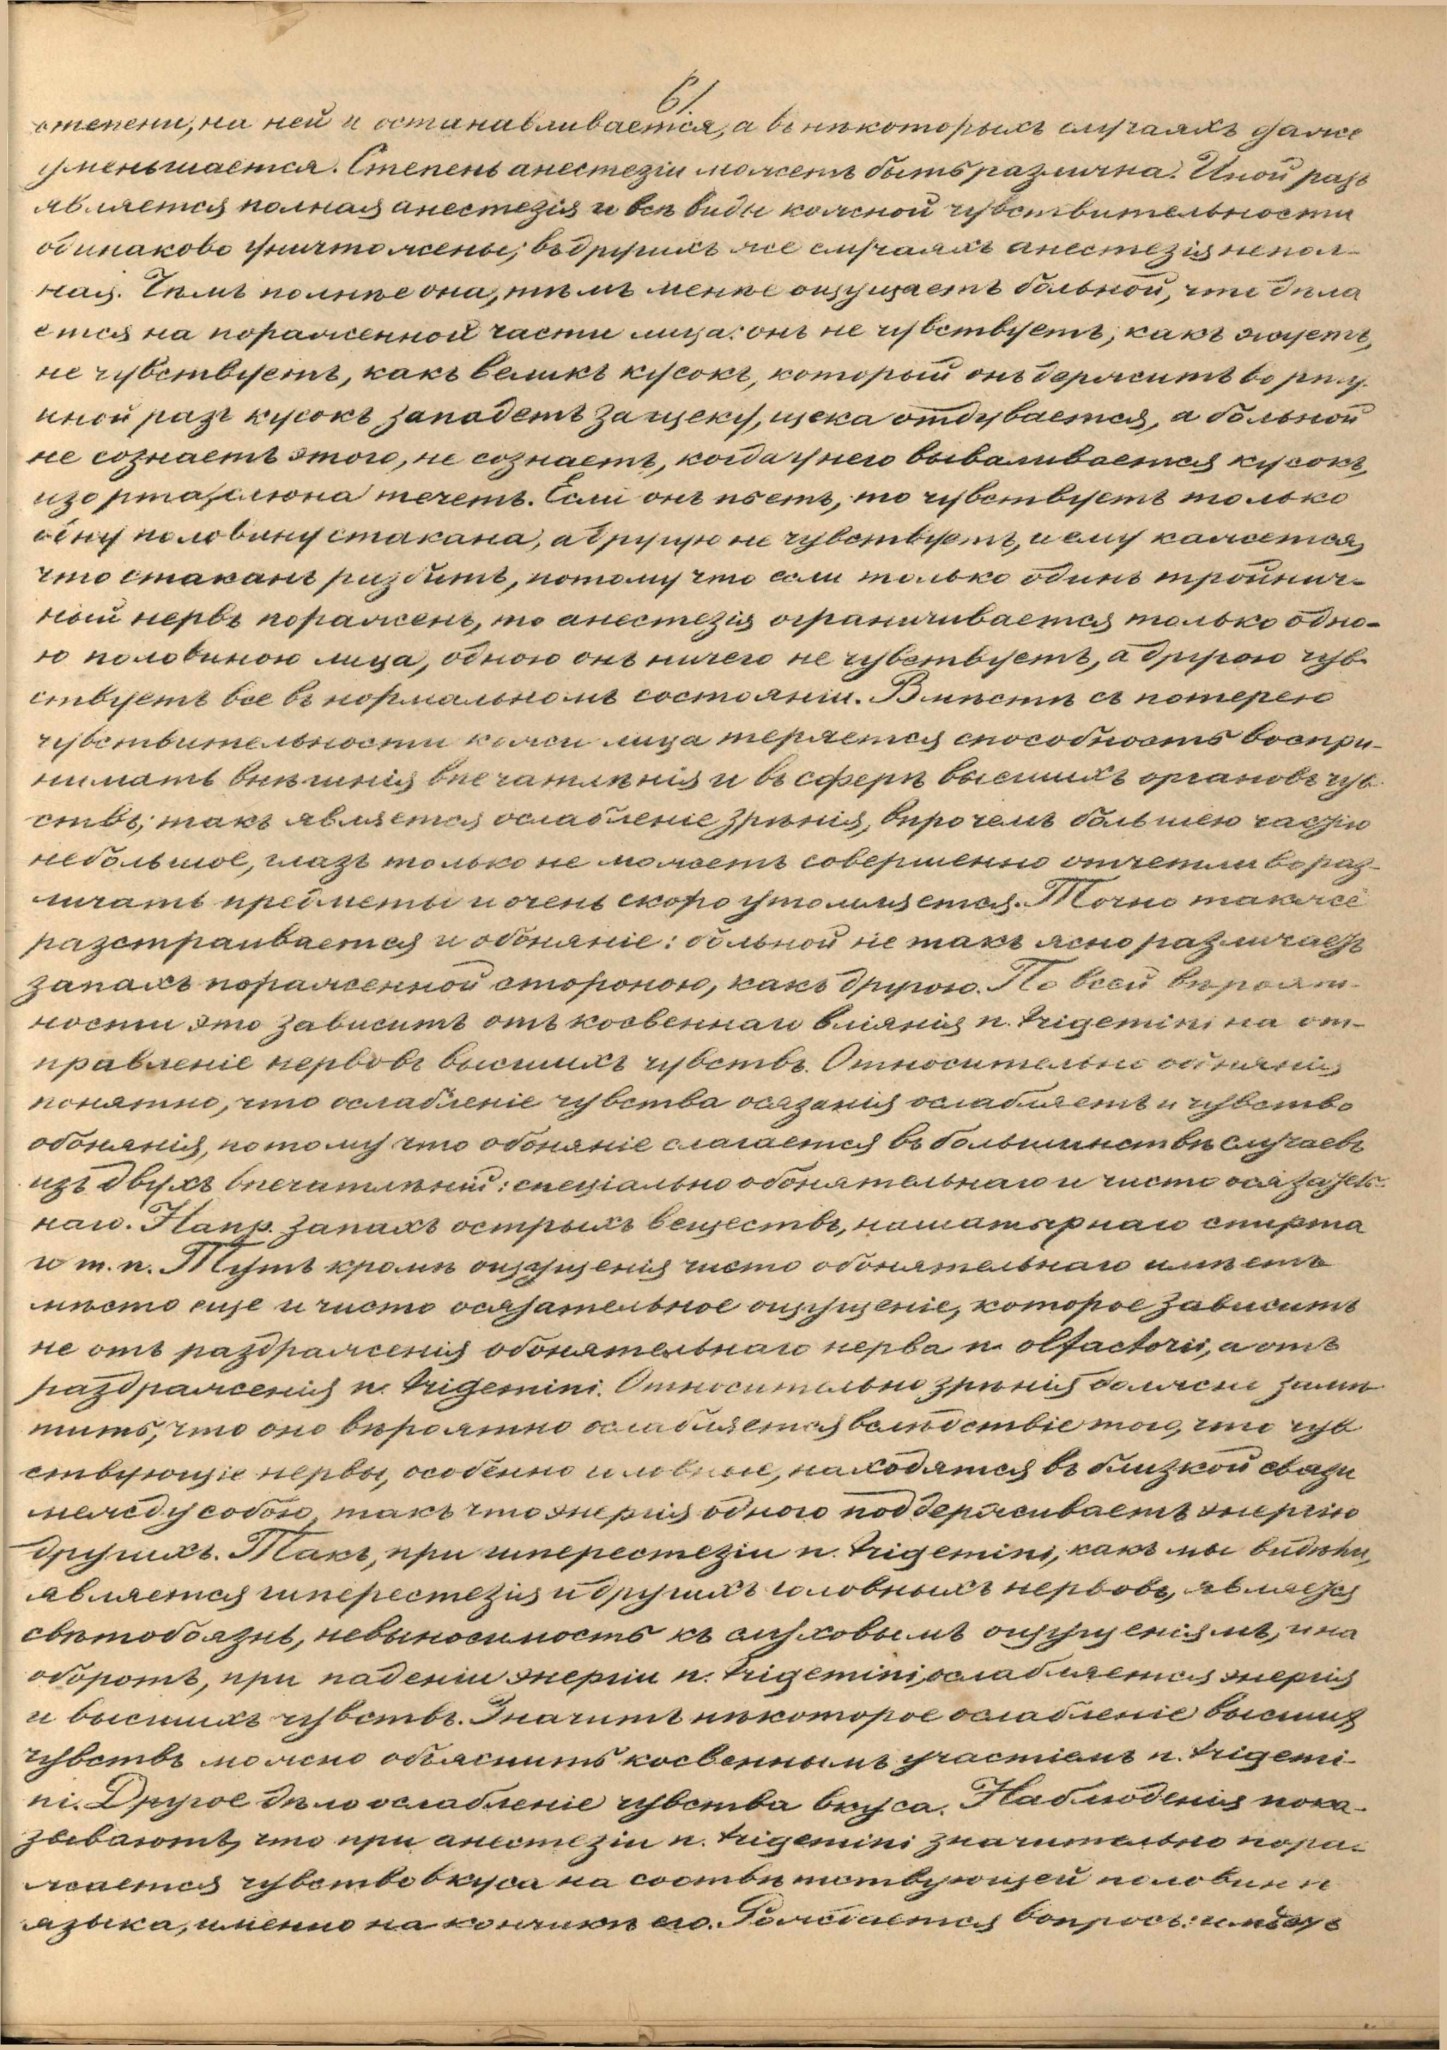 61.
степени, на ней и останавливается, а въ нѣкоторыхъ случаяхъ даже
уменьшается. Степень анестезіи можетъ быть различна. Иной разъ
является полная анестезія и всѣ виды кожной чувствительности
одинаково уничтожены; въ другихъ же случаяхъ анестезія непол-
ная. Чѣмъ полнѣе она, тѣмъ менѣе ощущаетъ больной, что дѣла
ется на пораженной части лица: онъ не чувствуетъ, какъ жуетъ,
не чувствуетъ, какъ великъ кусокъ, который онъ держитъ во рту
иной разъ кусокъ западетъ за щеку, щека отдувается, а больной
не сознаетъ этого, не сознаетъ, когда у него вываливается кусокъ
изо рта, слюна течетъ. Если онъ пьетъ, то чувствуетъ только
одну половину стакана, а другую не чувствуетъ, и ему кажется,
что стаканъ разбитъ, потому что если только одинъ тройнич-
ный нервъ пораженъ, то анестезія ограничивается только одно-
ю половиною лица, одною онъ ничего не чувствуетъ, а другою чув-
ствуетъ все въ нормальномъ состояніи. Вмѣстѣ съ потерею
чувствительности кожи лица теряется способность воспри-
нимать внѣшнія впечатлѣнія и въ сферѣ высшихъ органовъ чув-
ствъ; такъ является ослабленіе зрѣнія, впрочемъ большею частію
небольшое, глазъ только не можетъ совершенно отчетливо раз-
личать предметы и очень скоро утомляется. Точно также
разстраивается и обоняніе: больной не такъ ясно различаетъ
запахъ пораженной стороною, какъ другою. По всей вѣроят-
ности это зависитъ отъ косвеннаго вліянія n. trigemini на от-
правленіе нервовъ высшихъ чувствъ. Относительно обонянія
понятно, что ослабленіе чувства осязанія ослабляетъ и чувство
обонянія, потому что обоняніе слагается въ большинствѣ случаевъ
изъ двухъ впечатлѣній: спеціально обонятельнаго и чисто осязатель-
наго. Напр. запахъ острыхъ веществъ, нашатырнаго спирта
и т. п. Тутъ кромѣ ощущенія чисто обонятельнаго имѣетъ
мѣсто еще и чисто осязательное ощущеніе, которое зависитъ
не отъ раздраженія обонятельнаго нерва n. olfactorii, а отъ
раздраженія n. trigemini. Относительно зрѣнія должно замѣ
тить, что оно вѣроятно ослабляется вслѣдствіе того, что чув
ствующіе нервы, особенно головные, находятся въ близкой связи
между собою, такъ что энергія одного поддерживаетъ энергію
другихъ. Такъ, при гиперестезіи n. trigemini, какъ мы видѣли,
является гиперестезія и другихъ головныхъ нервовъ, является
свѣтобоязнь, невыносимость къ слуховымъ ощущеніямъ, и на
оборотъ, при паденіи энергіи n. trigemini, ослабляется энергія
и высшихъ чувствъ. Значитъ нѣкоторое ослабленіе высшихъ
чувствъ можно объяснить косвеннымъ участіемъ n. trigemi-
ni. Другое дѣло ослабленіе чувства вкуса. Наблюденія пока-
зываютъ, что при анестезіи n. trigemini значительно пора-
жается чувство вкуса на соотвѣтствующей половинѣ
языка, именно на кончикѣ его. Рождается вопросъ: имѣетъ